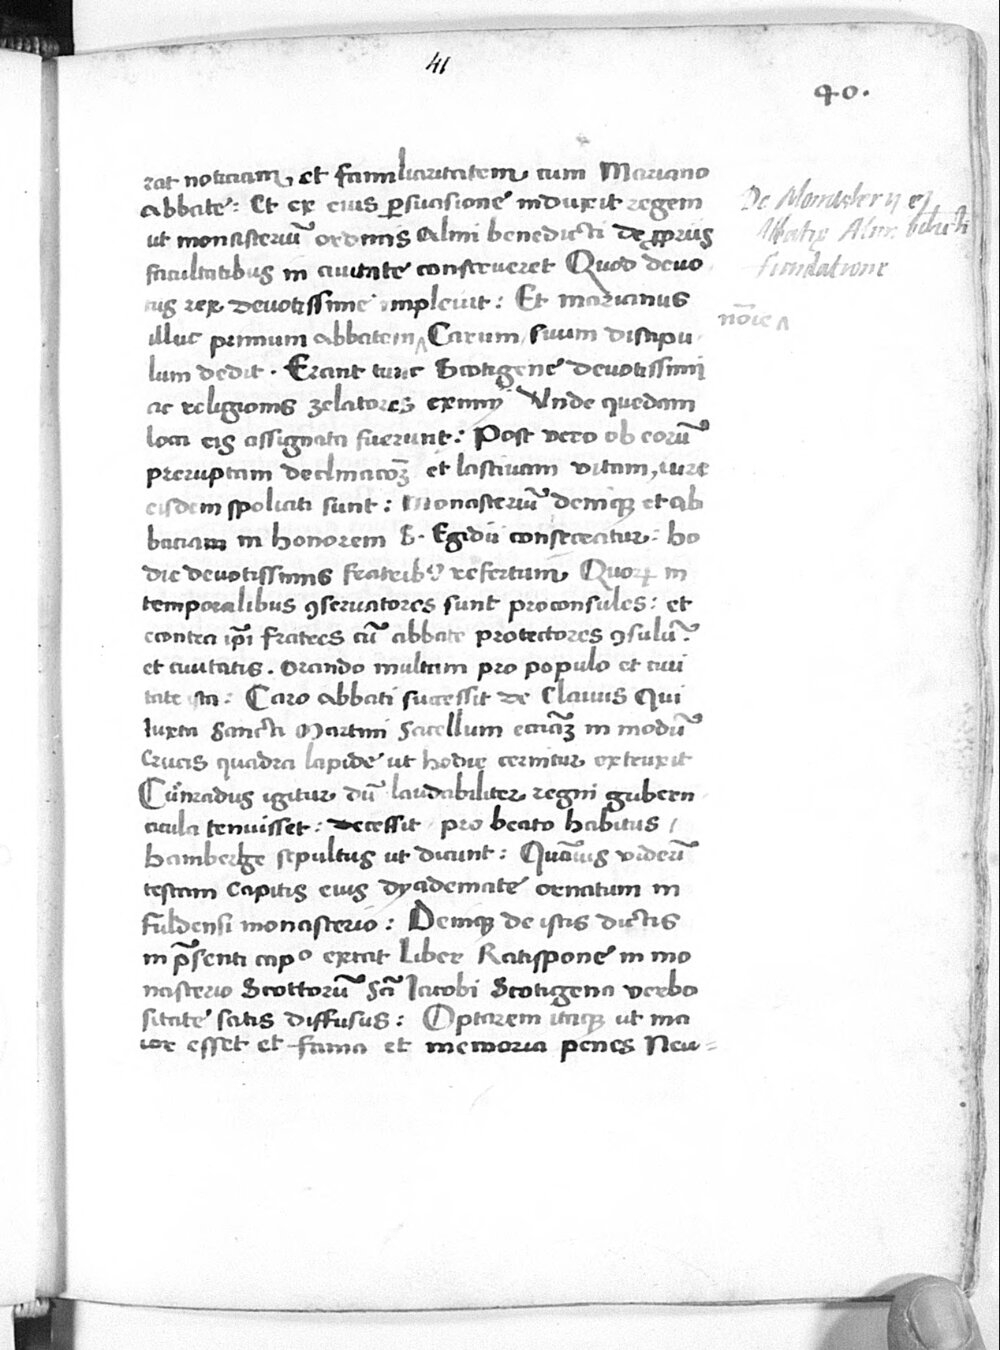 41
40.
rat noticiam, et familiaritatem cum Mariano
abbate: Et ex eius ꝑsuasione induxit regem
ut monasteriū ordinis Almi benedicti de ꝓpriis
facultatibus in ciuitate construeret Quod deuo
tus rex deuotissime impleuit: Et marianus
illuc primum abbatem ꓥ Carum, suum discipu
lum dedit. Erant tunc Scotigene deuotissimi
ac religionis zelatores eximij Unde quedam
loca eis assignata fuerunt: Post vero ob eorū
preruptam declinacōꝫ et lasciuam vitam, iure
eisdem spoliati sunt: Monasteriū deniqꝫ et ab
baciam in honorem S. Egidii consecratur: ho
die deuotissimis fratribꝰ refertum Quoꝝ in
temporalibus ꝯseruatores sunt proconsules: et
econtra ip̄i fratres cū abbate protectores ꝯsulū:
et ciuitatis. orando multum pro populo et ciui
tate ista: Caro abbati successit de Clauis Qui
Iuxta Sancti Martini Sacellum eciāꝫ in modū
Crucis quadra lapide ut hodie cernitur extruxit
Cūnradus igitur dū laudabiliter regni gubern
acula tenuisset: decessit pro beato habitus /
Hamberge sepultus ut dicunt: Quāuis viderī
testam capitis eius dyademate ornatum in
fuldensi monasterio: Deniqꝫ de istis dictis
in p̄senti capᵒ extat Liber Ratispone in mo
nasterio Scottorū Scī Iacobi Scotigena verbo
sitate satis diffusus: Optarem itaqꝫ ut ma
ior esset et fama et memoria penes Neu=
De Monasterij et
Abbatie Almi bndicti
fundatione
nōie ꓥ